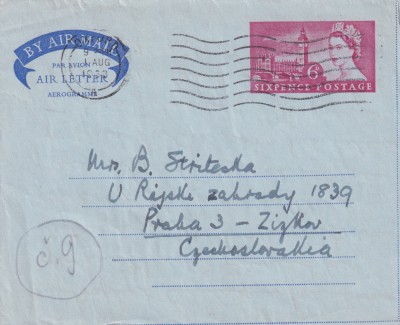 BY AIR MAIL
PAR AVION
AIR LETTER
AEROGRAMME
AUG
6D
SIXPENCE POSTAGE
Mrs. B. Stritecka
U Rajske zahrady 1839
Praha 3 – Zizkov
Czechoslovakia
č.9